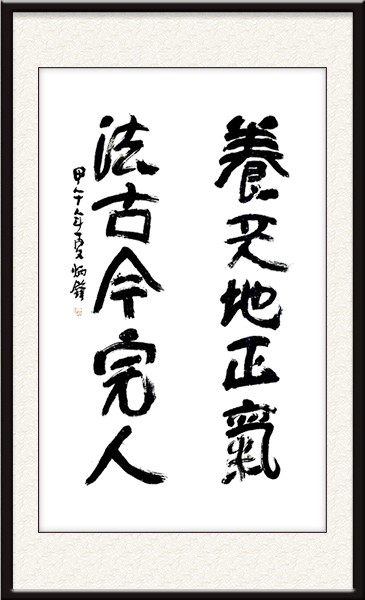 養天地正氣
法古今完人
甲午年夏炳鋒